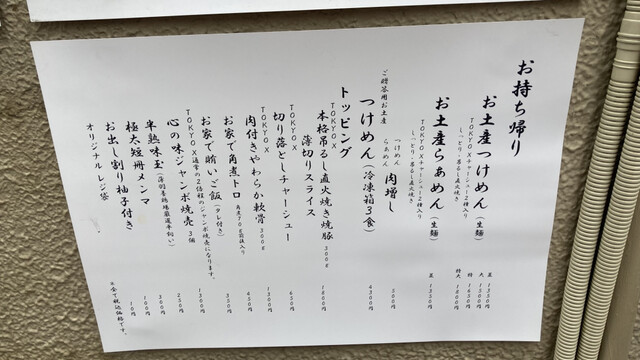 お持ち帰り
お土産つけめん（生麺） 並 1350円
TOKYO Xチャーシュー2種入り 大 1500円
しっとり・吊るし直火焼き 特 1650円
特大 1800円
お土産らぁめん（生麺） 並 1350円
TOKYO Xチャーシュー2種入り
しっとり・吊るし直火焼き
つけめん
らぁめん 肉増し 500円
ご贈答用お土産
つけめん（冷凍箱3食） 4300円
トッピング
本格吊るし直火焼き焼豚 300g 1800円
TOKYO X
薄切りスライス 650円
TOKYO X
切り落としチャーシュー 1300円
TOKYO X
肉付きやわらか軟骨 300g 650円
お家で角煮トロ 350円
お家で賄いご飯（タレ付き） 1300円
TOKYO X通常の2倍程のジャンボ焼売になります。
心の味ジャンボ焼売 3個 250円
半熟味玉 300円
極太短冊メンマ 100円
お出し割り柚子付き 100円
オリジナルレジ袋 10円
※全て税込価格です。